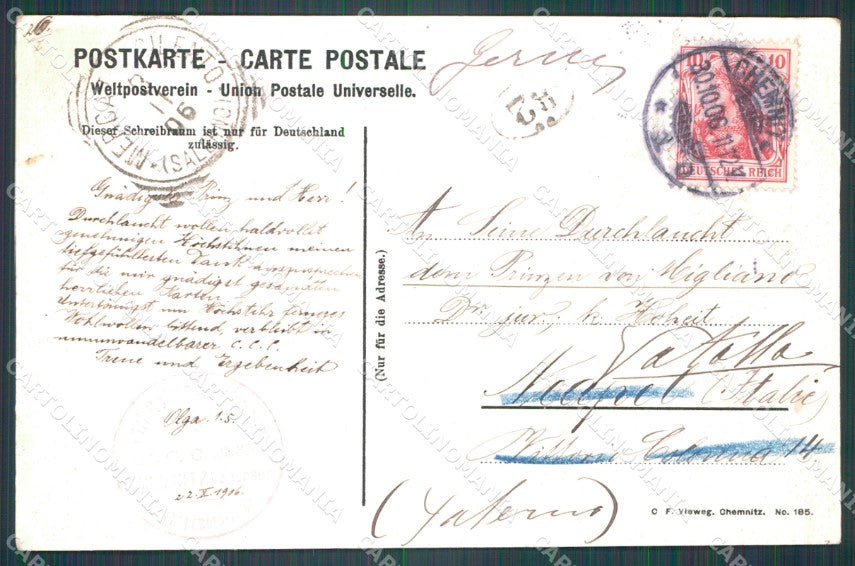 POSTKARTE - CARTE POSTALE
Weltpostverein - Union Postale Universelle.
Dieser Schreibraum ist nur für Deutschland
zulässig.
MERCATO (SALERNO)
10 10
DEUTSCHES REICH
CHEMNITZ
30.10.06
Gnädigster Prinz und Herr!
Durchlaucht wollen huldvollst
genehmigen Höchstihnen meinen
tiefgefühltesten Dank auszusprechen
für die mir gnädigst gesandten
herrlichen Karten.
Unterthänigst um Höchstihr ferneres
Wohlwollen bittend, verbleibt in
unwandelbarer C.C.C.
Treue und Ergebenheit
Olga
22.X.1906.
(Nur für die Adresse.)
An Seine Durchlaucht
dem Prinzen von Migliano
Dr. jur. k. Hoheit
Vatolla
Neapel (Italie)
Vittoria Colonna 14
(Salerno)
C. F. Vieweg. Chemnitz. No. 185.
CARTOLINOMANIA